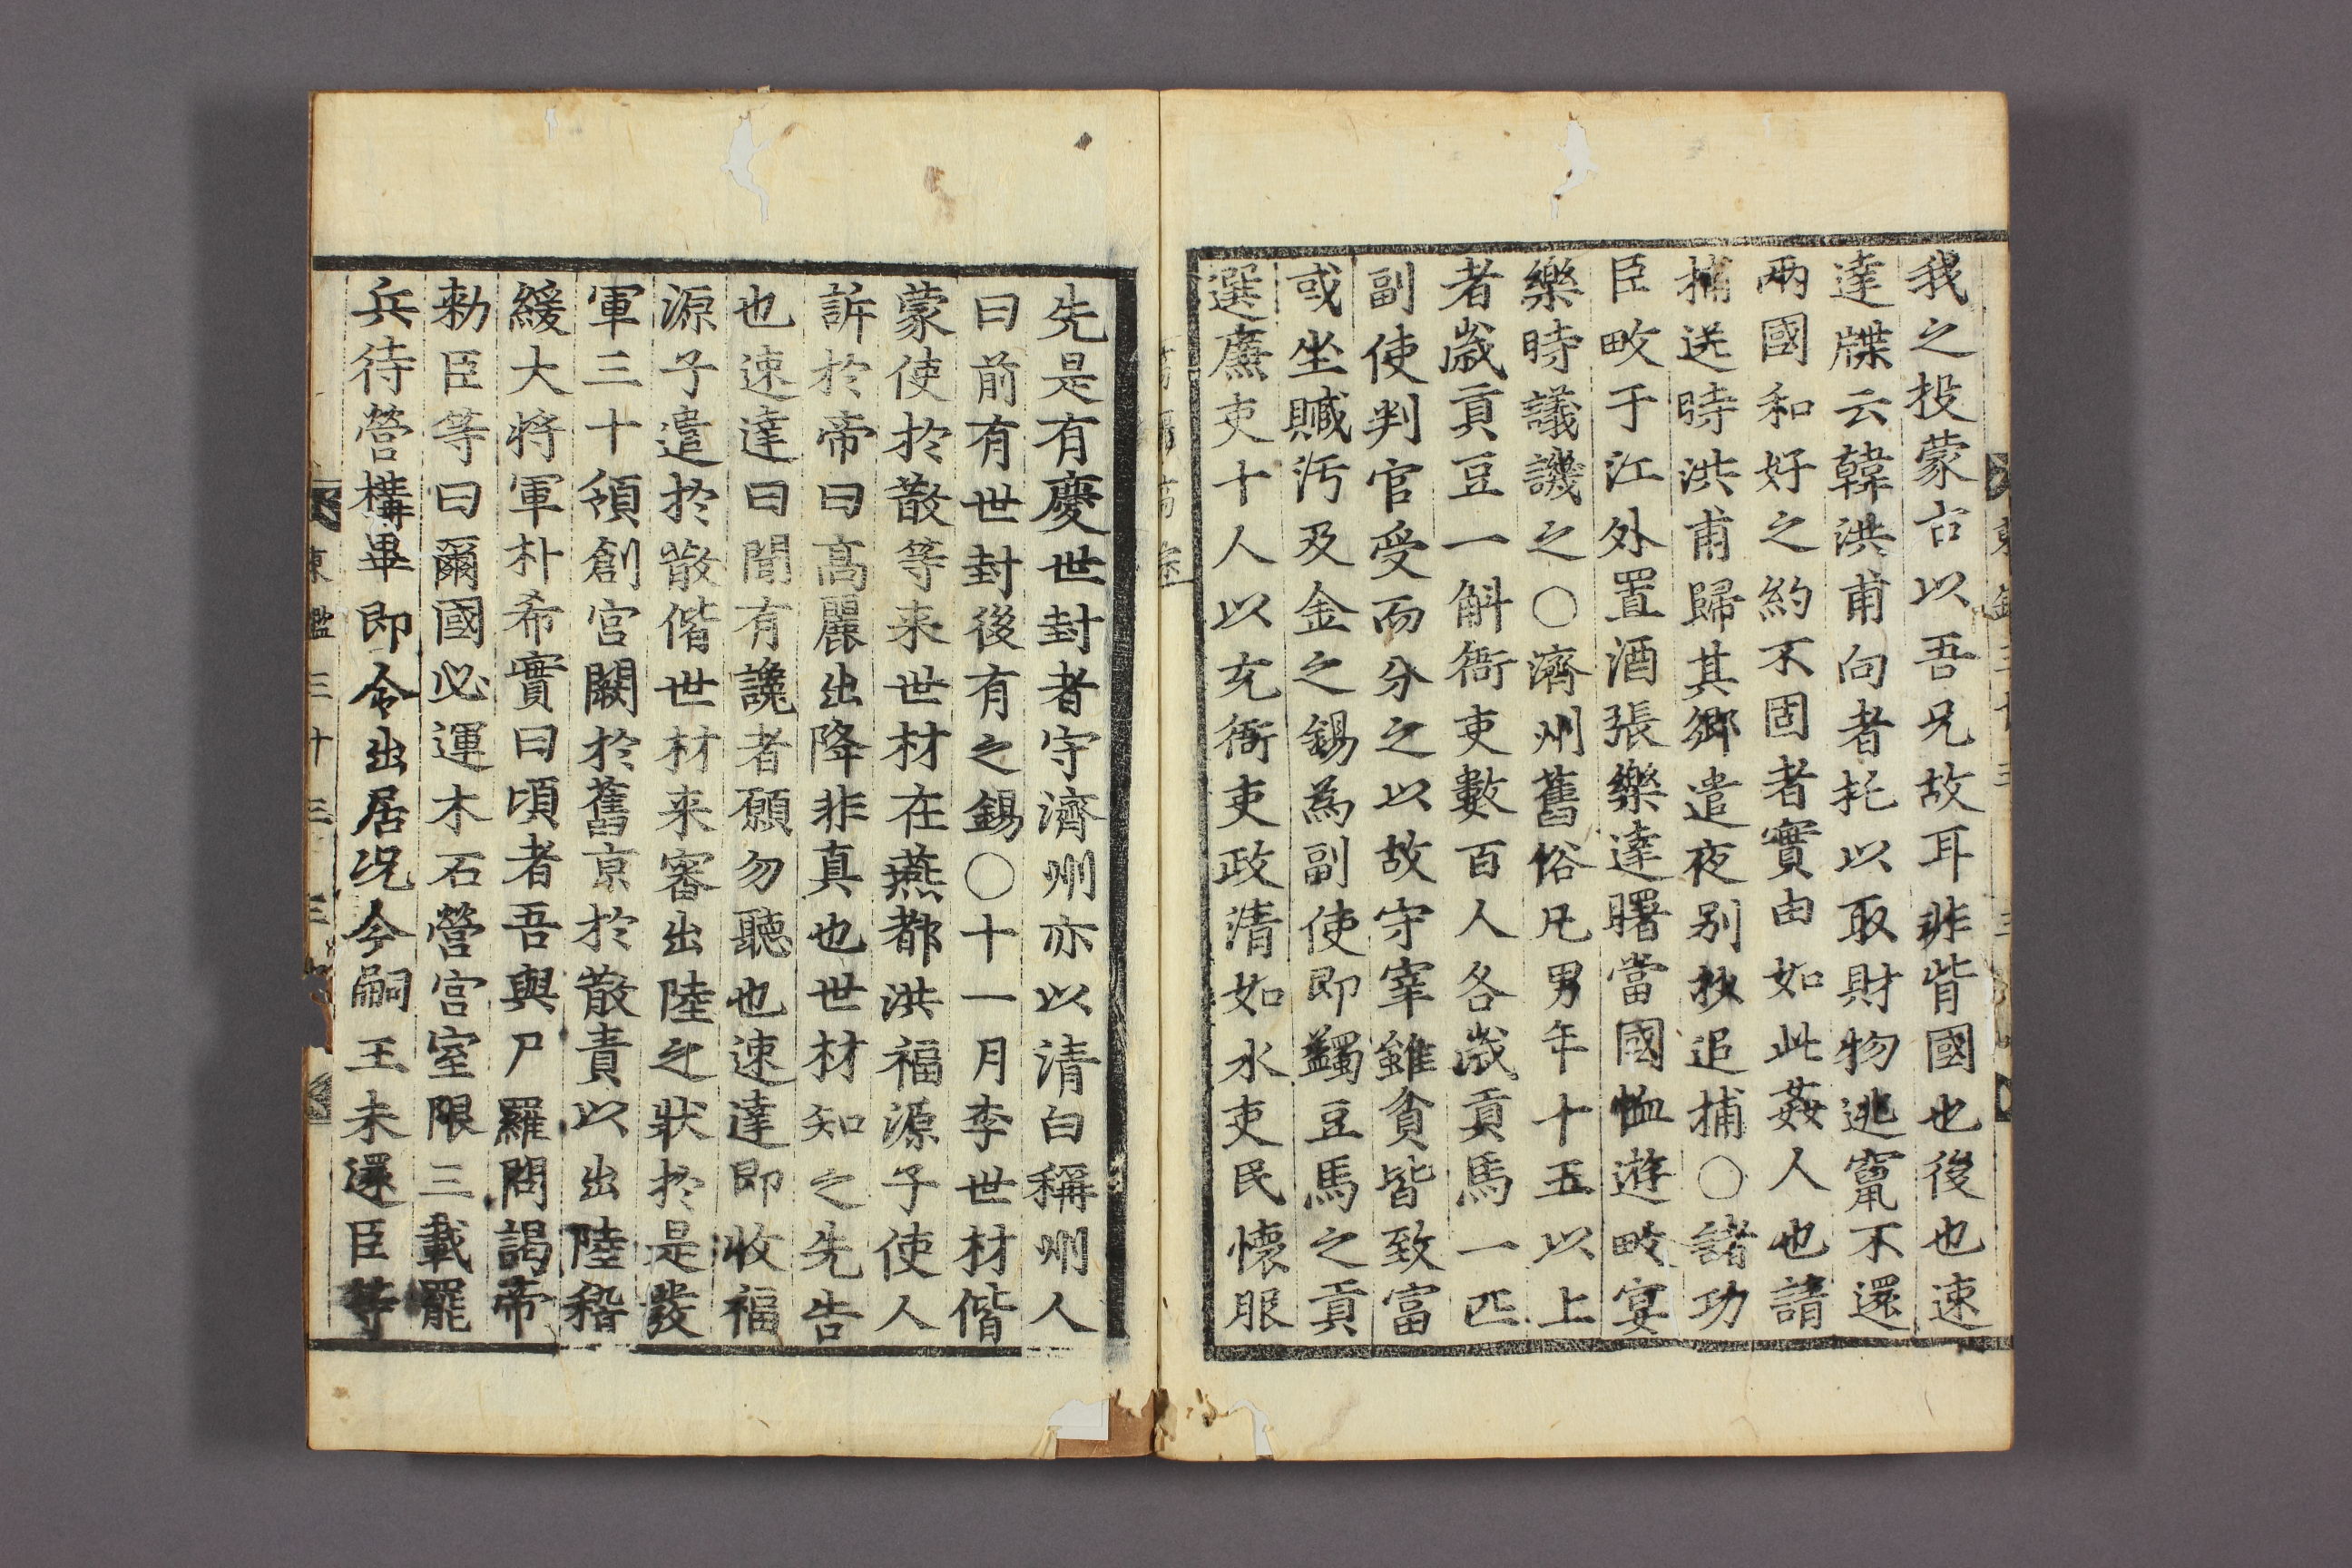 我之投蒙古以吾兄故耳非背國也後也速
達牒云韓洪甫向者托以取財物逃竄不還
兩國和好之約不固者實由如此姦人也請
捕送時洪甫歸其鄉遣夜別抄追捕〇諸功
臣畋于江外置酒張樂達曙當國恤遊畋宴
樂時議譏之〇濟州舊俗凡男年十五以上
者歲貢豆一斛衙吏數百人各歲貢馬一匹
副使判官受而分之以故守宰雖貧皆致富
或坐贓汚及金之錫爲副使即蠲豆馬之貢
選廉吏十人以充衙吏政清如水吏民懷服
先是有慶世封者守濟州亦以清白稱州人
曰前有世封後有之錫〇十一月李世材偕
蒙使於散等来世材在燕都洪福源子使人
訴於帝曰高麗出降非真也世材知之先告
也速達曰聞有讒者願勿聽也速達即收福
源子遣於散偕世材来審出陸之狀於是發
軍三十領創宮闕於舊京於散責以出陸稽
緩大将軍朴希實曰頃者吾與尸羅問謁帝
勅臣等曰爾國必運木石營宮室限三載罷
兵待營構畢即令出居况今嗣王未還臣等
東鑑三十三 三